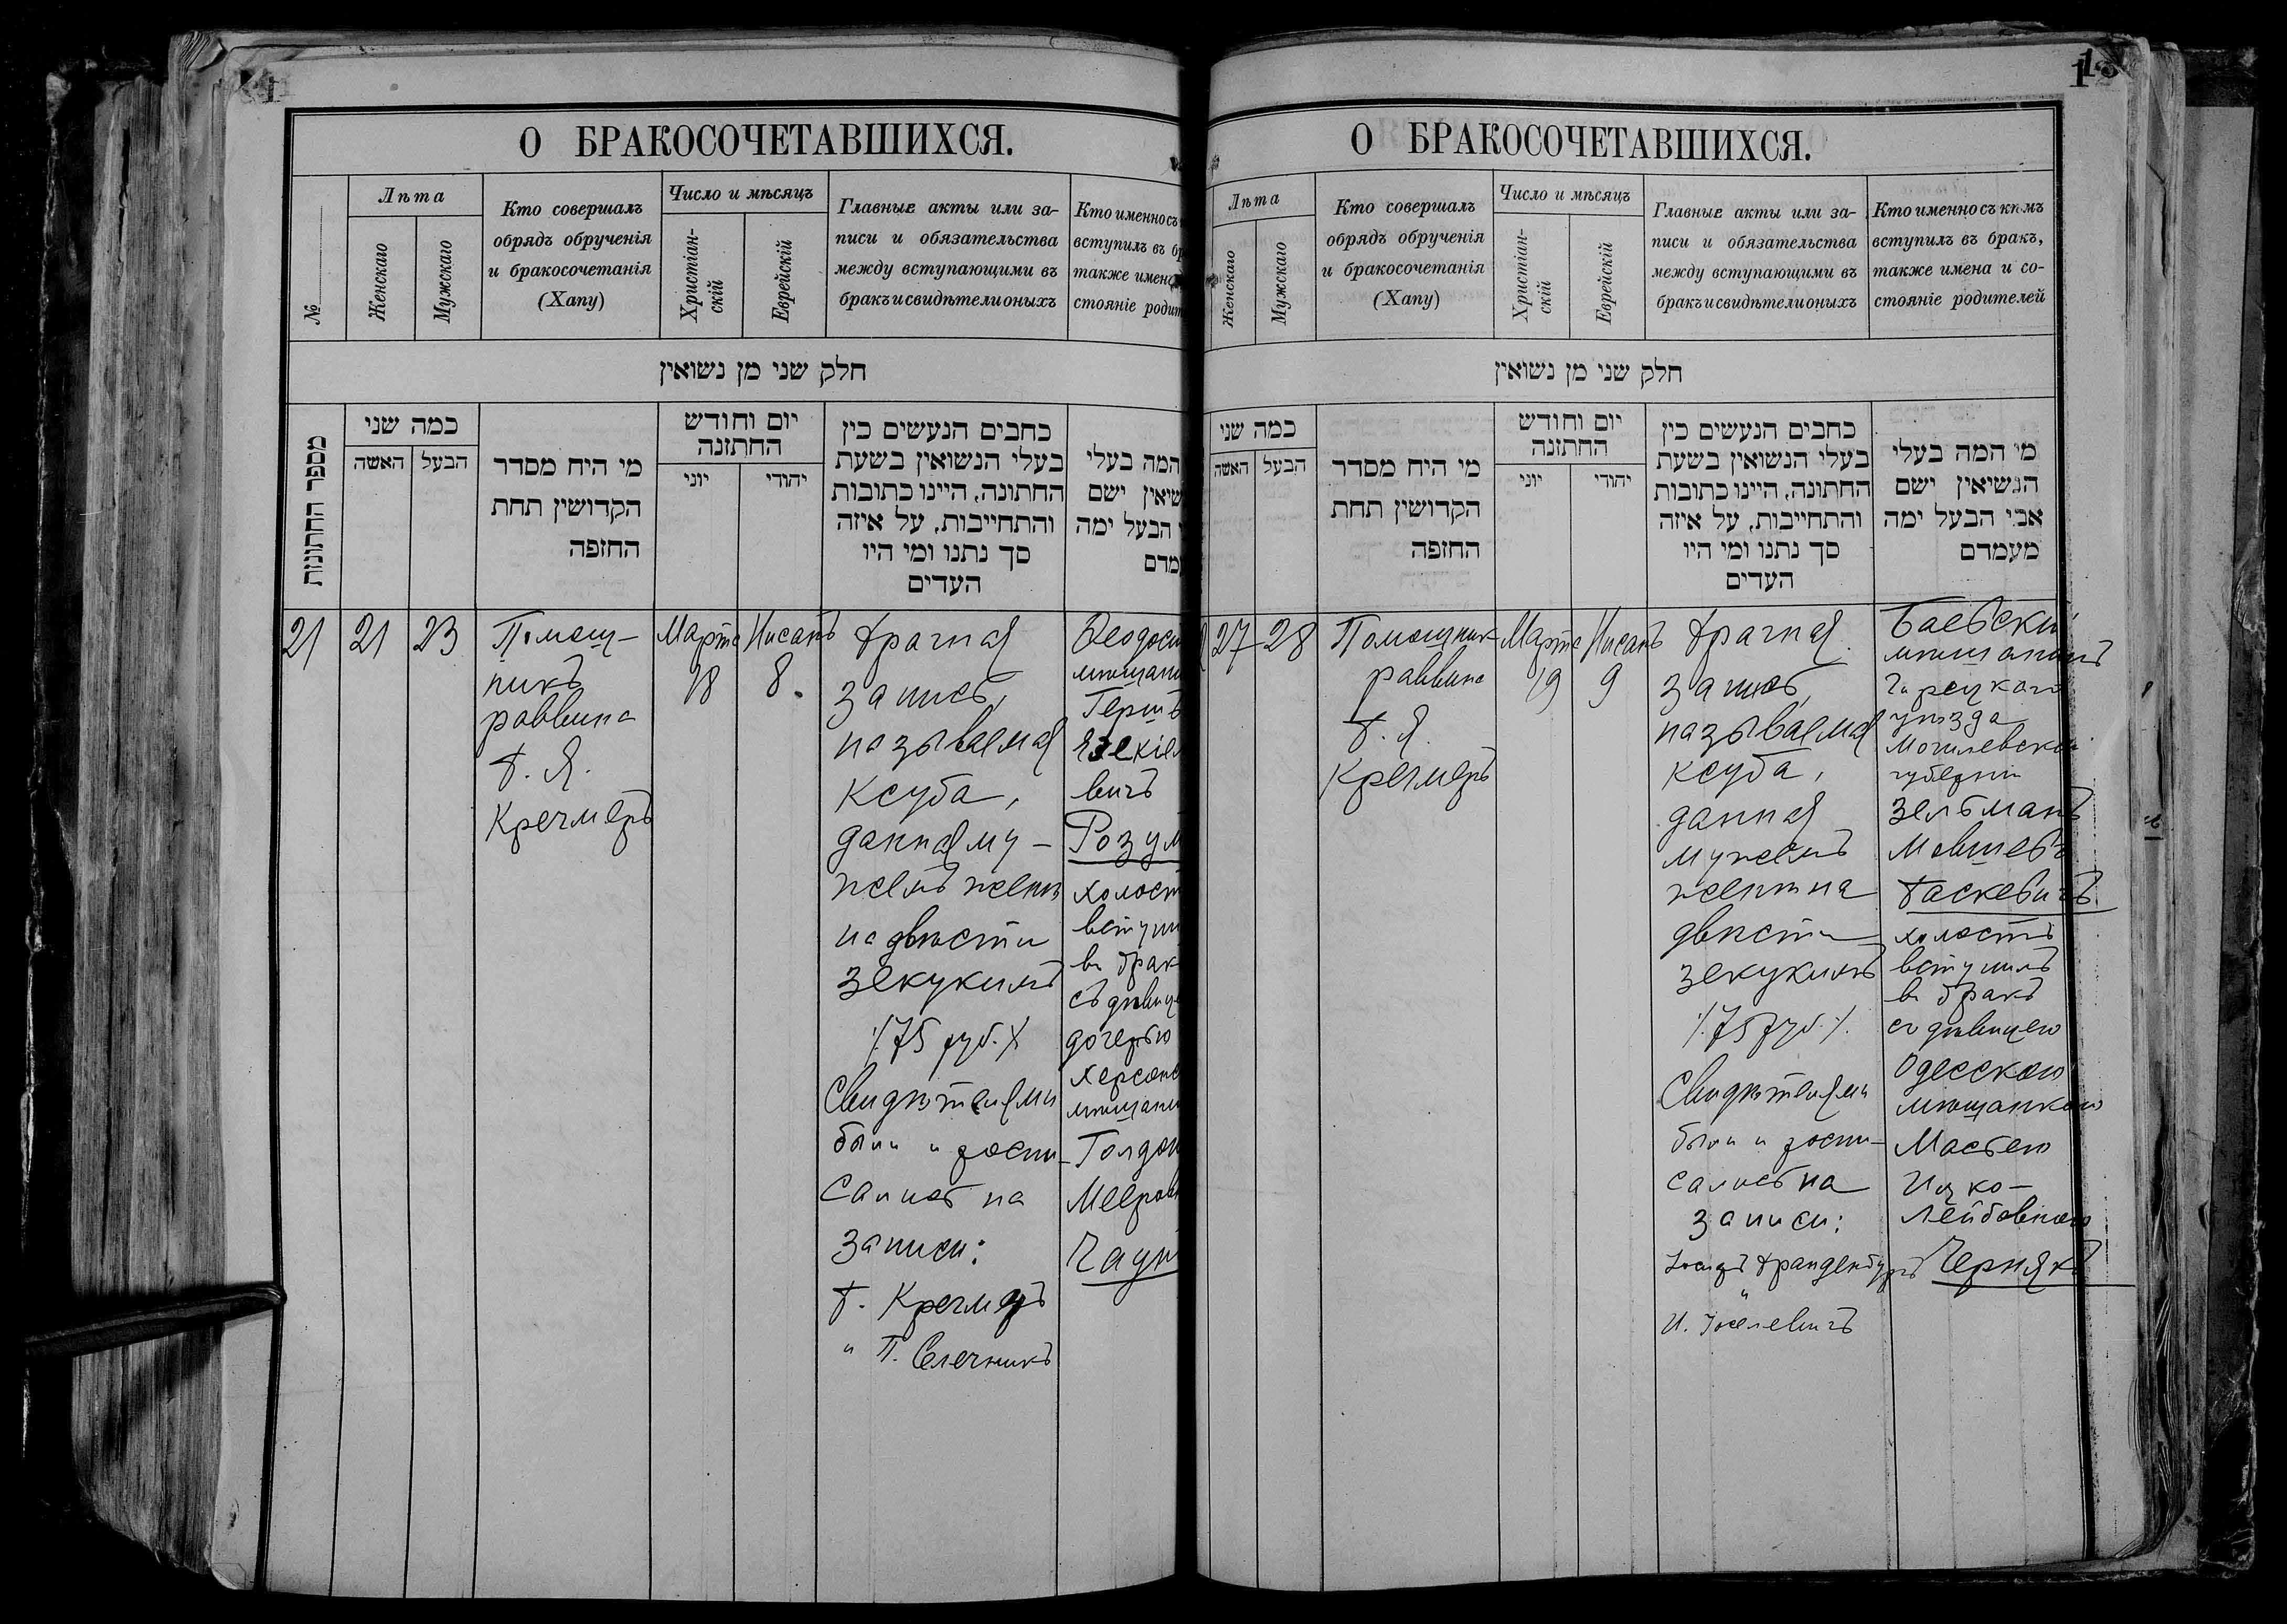 О БРАКОСОЧЕТАВШИХСЯ.
№
Лѣта
Женскаго
Мужскаго
Кто совершалъ
обрядъ обрученія
и бракосочетанія
(Хапу)
Число и мѣсяцъ
Христіан-
скій
Еврейскій
Главныя акты или за-
писи и обязательства
между вступающими въ
бракъ и свидѣтели оныхъ
Кто именно съ
вступилъ въ бр
также имена
стояніе родит
חלק שני מן נשואין
מספר החתונות
כמה שני
האשה
הבעל
מי היח מסדר
הקדושין תחת
החופה
יום וחודש
החתונה
יוני
יהודי
כתבים הנעשים כין
בעלי הנשואין בשעת
החתונה, היינו כתובות
והתחייבות, על איזה
סך נתנו ומי היו
העדים
המה בעלי
שיאין ישם
הבעל ימה
מדם
21
21
23
Помощ-
никъ
раввина
Ф. Я.
Кречмеръ
Марта
18
Нисанъ
8.
Брачная
запись,
называемая
Ксуба,
данная му-
жемъ женѣ
на двѣсти
зекукимъ
/:75 руб.:/
Свидѣтелями
были и роспи-
сались на
записи:
Ф. Кречмеръ
" П. Селечникъ
Ѳеодосі
мѣщани
Гершъ
Язекіел
вичъ
Розум
холост
вступи
въ брак
съ дѣвице
дочерью
Херсонс
мѣщани
Голдою
Мееров
Чауш
О БРАКОСОЧЕТАВШИХСЯ.
13
Лѣта
Женскаго
Мужскаго
Кто совершалъ
обрядъ обрученія
и бракосочетанія
(Хапу)
Число и мѣсяцъ
Христіан-
скій
Еврейскій
Главныя акты или за-
писи и обязательства
между вступающими въ
бракъ и свидѣтели оныхъ
Кто именно съ кѣмъ
вступилъ въ бракъ,
также имена и со-
стояніе родителей
חלק שני מן נשואין
כמה שני
האשה
הבעל
מי היח מסדר
הקדושין תחת
החופה
יום וחודש
החתונה
יוני
יהודי
כתבים הנעשים כין
בעלי הנשואין בשעת
החתונה, היינו כתובות
והתחייבות, על איזה
סך נתנו ומי היו
העדים
מי המה בעלי
הנשיאין ישם
אבי הבעל ימה
מעמדם
27
28
Помощник
раввина
Ф. Я.
Кречмеръ
Марта
19
Нисанъ
9
Брачная
запись,
называемая
ксуба,
данная
мужемъ
женѣ на
двѣсти
зекукимъ
/:75 руб.:/
Свидѣтелями
были и роспи-
сались на
записи:
Іосифъ Брандентуръ
"
И. Іоселевичъ
Баевскій
мѣщанинъ
Горецкаго
уѣзда
Могилевской
губерніи
Зельманъ
Мовшевъ
Фаскевичъ
холостъ
вступилъ
въ бракъ
съ дѣвицею
Одесскою
мѣщанкою
Масьею
Ицко-
Лейбовною
Чернякъ